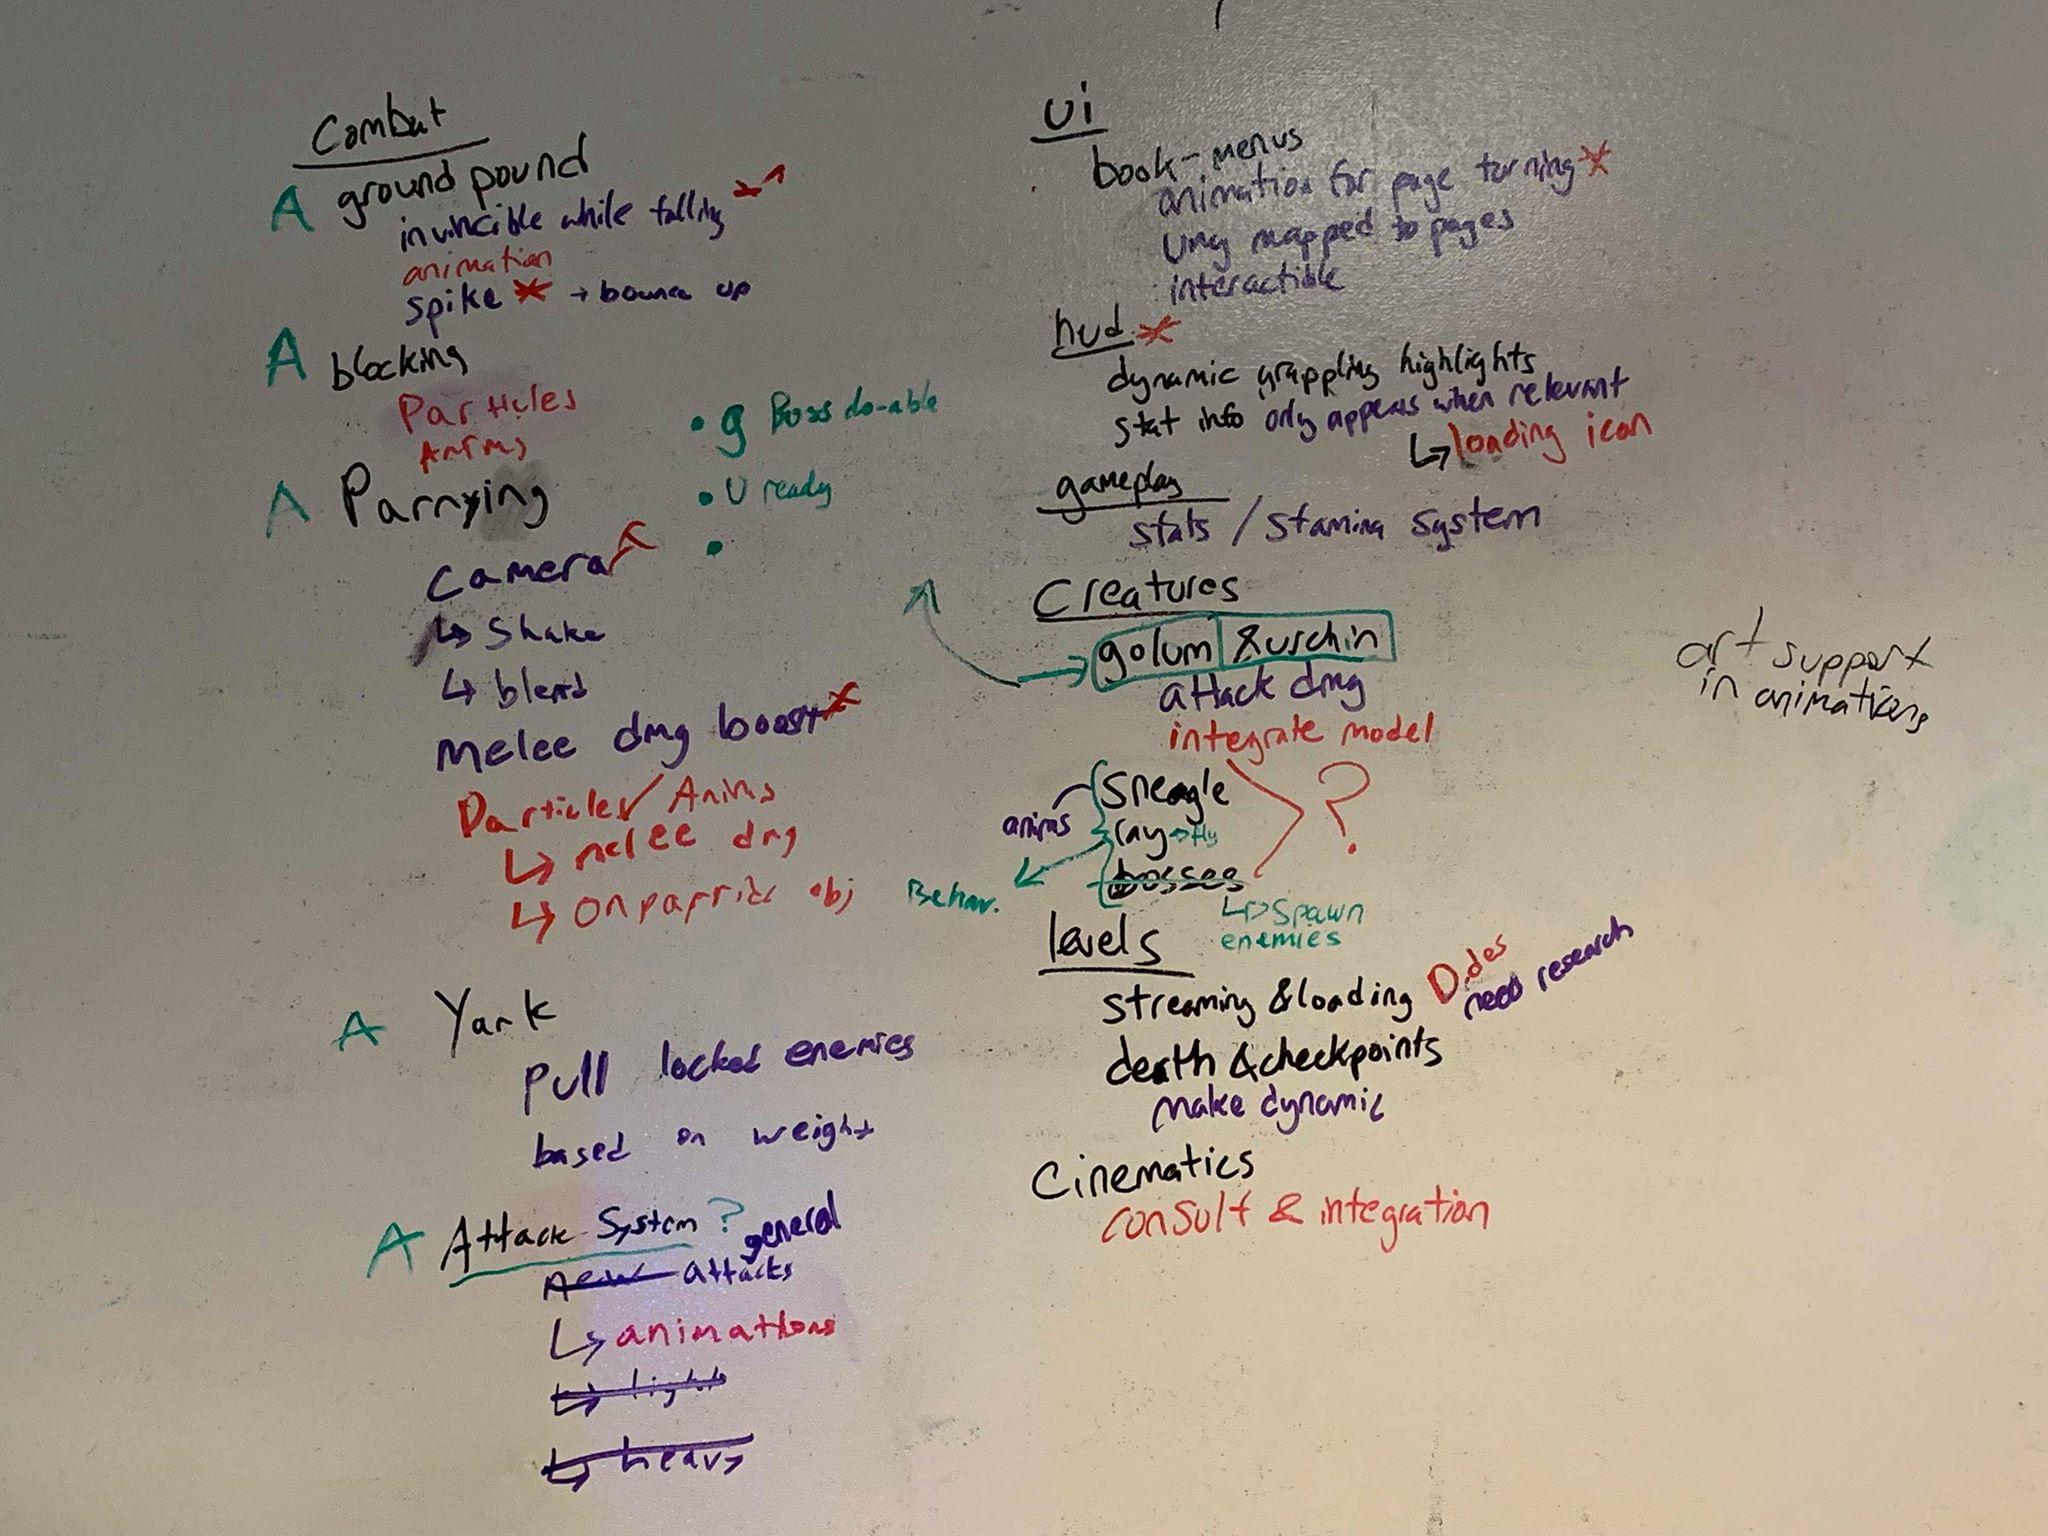 Combat
A ground pound
invincible while falling
animation
spike → bounce up
A blocking
Particles
Anims
A Parrying
Camera
↳ Shake
↳ blend
Melee dmg boost
Particles / Anims
↳ melee dmg
↳ On obj
A Yank
Pull locked enemies
based on weight
A Attack System ?
general
new attacks
↳ animations
↳ light
↳ heavy
• g Boss do-able
• U ready
•
ui
book-menus
animation for page turning
umg mapped to pages
interactible
hud
dynamic grappling highlights
stat info only appears when relevant
↳ loading icon
gameplay
stats / stamina system
Creatures
golum & urchin
attack dmg
integrate model
anims
Sneagle
ray → fly
bosses
?
Behav.
↳ spawn
enemies
levels
streaming & loading D.des
need research
death & checkpoints
make dynamic
Cinematics
consult & integration
art support
in animations